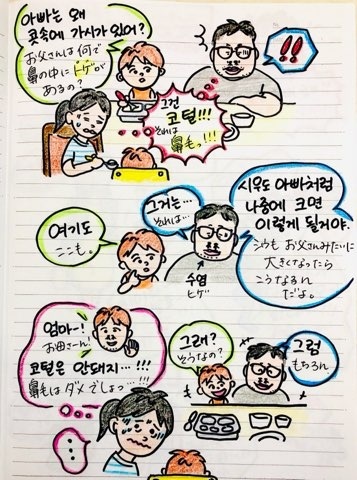 아빠는 왜
콧속에 가시가 있어?
お父さんは何で
鼻の中にトゲが
あるの?
!!
그건
코털!!!
それは
鼻毛っ!!!
여기도
ここも。
그거는…
それは…
수염
ヒゲ
시우도 아빠처럼
나중에 크면
이렇게 될거야.
シウも お父さんみたいに
大きくなったら
こうなるん
だよ。
엄마~!
お母さん!
코털은 안돼지…!!!
鼻毛はダメでしょっ…!!!
그래?
そうなの?
그럼
もちろん
…